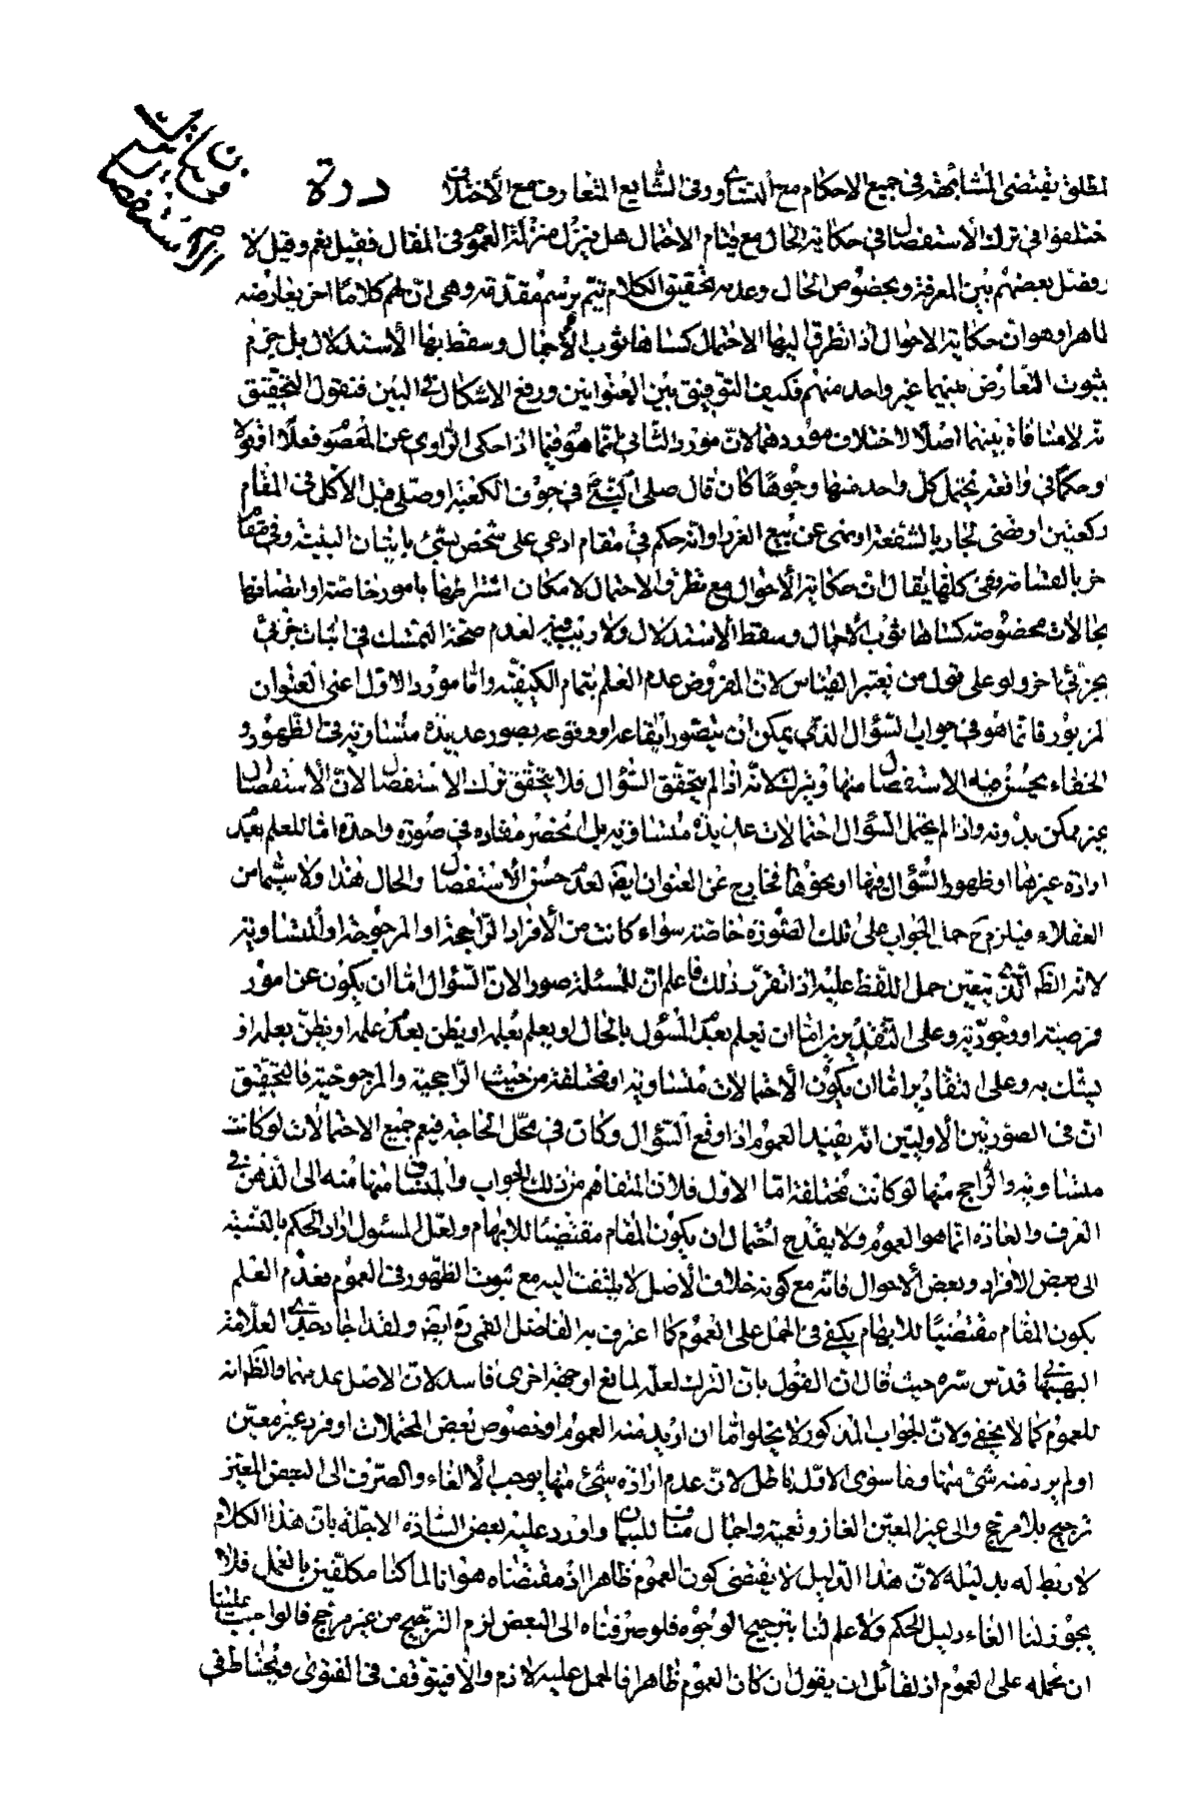 لمطلق يقتضى المشابهة فى جميع الاحكام مع التساوى وفى الشايع المتعارف مع الاختلاف درة
ختلفوا فى ترك الاستفصال فى حكاية الحال مع قيام الاحتمال هل ينزل منزلة العموم فى المقال فقيل نعم وقيل لا
وفصّل بعضهم بين المعرفة وبخصوص الحال وعدمه تحقيق الكلام يتم برسم مقدمة وهى ان لهم كلاما اخر يعارضه
ظاهرا وهو ان حكاية الاحوال اذا تطرق اليها الاحتمال كساها ثوب الاجمال وسقط بها الاستدلال بل جزم
بثبوت التعارض بينهما غير واحد منهم فكيف التوفيق بين العنوانين ورفع الاشكال فى البين فنقول التحقيق
نه لا منافاة بينهما اصلا لاختلاف موردهما لان مورد الثانى انما هو فيما اذا حكى الراوى عن المعصوم فعلا او قولا
او حكما فى واقعة يحتمل كل واحد منها وجوها كان قال صلى النبى فى جوف الكعبة او صلى قبل الاكل فى المقام
ركعتين او قضى لجار بالشفعة او نهى عن بيع الغرر او انه حكم فى مقام ادعى على شخص بشئ باتيان البينة وفى مقام
خر بالقسامة ففى كلها يقال ان حكاية الاحوال مع تطرق الاحتمال لامكان اشتراطها بامور خاصة او اتصافها
بحالات مخصوصة كساها ثوب الاجمال وسقط الاستدلال ولا ريب فيه لعدم صحة التمسك فى اثبات جزئى
بجزئى اخر ولو على قول من يعتبر القياس لان المفروض عدم العلم بتمام الكيفية واما مورد الاول اعنى العنوان
لمزبور فانما هو فى جواب السؤال الذى يمكن ان يتصور ايقاعه او وقوعه بصور عديدة متساوية فى الظهور و
الخفاء يحسن فيه الاستفصال منها ويترك لانه اذا لم يتحقق السؤال فلا يتحقق ترك الاستفصال لان الاستفصال
غير ممكن بدونه واذا لم يحتمل السؤال احتمالات عديدة متساوية بل انحصر مفاده فى صورة واحدة اما للعلم بعدم
ارادة غيرها او ظهور السؤال فيها او نحوها فخارج عن العنوان ايضا لعدم حسن الاستفصال والحال هذا ولا سيما من
العقلاء فيلزم ح حمل الجواب على تلك الصورة خاصة سواء كانت من الافراد الراجحة او المرجوحة او المتساوية
لانه الظاهر الذى يتعين حمل اللفظ عليه اذا تقرر ذلك فاعلم ان للمسئلة صور الان السؤال اما ان يكون عن امور
فرضية او وجودية وعلى التقديرين اما ان يعلم بعدم المسؤل بالحال او يعلم بعلمه او يظن بعدم علمه او يظن بعلمه او
يشك به وعلى التقادير اما ان يكون الاحتمالات متساوية او مختلفة من حيث الراجحية والمرجوحية فالتحقيق
ان فى الصورتين الاوليين انه يفيد العموم اذا وقع السؤال وكان فى محل الحاجة فيعم جميع الاحتمالات لو كانت
متساوية والراجح منها لو كانت مختلفة اما الاول فلان المتفاهم من ذلك الجواب والمنساق منها منه الى الذهن فى
العرف والعادة انما هو العموم ولا يقدح احتمال ان يكون المقام مقتضيا للابهام ولعل المسئول اراد الحكم بالنسبة
الى بعض الافراد وبعض الاحوال فانه مع كونه خلاف الاصل لا يلتفت اليه مع ثبوت الظهور فى العموم فعدم العلم
بكون المقام مقتضيا للابهام يكفى فى الحمل على العموم كما اعترف به الفاضل القمى ره ايضا ولقد اجاد جدى العلامة
البهبهانى قدس سره حيث قال ان القول بان الترك لعله لمانع او جهة اخرى فاسد لان الاصل عدمهما والظاهر انه
للعموم كما لا يخفى ولان الجواب المذكور لا يخلو اما ان اريد منه العموم او خصوص بعض المحتملات او فرد غير معين
او لم يرد منه شئ منها وفاسوى الاول باطل لان عدم ارادة شئ منها يوجب الالغاء والصرف الى البعض المعين
ترجيح بلا مرجح والى غير المعين الغاز وتعمية واجمال مناف للبيان واورد عليه بعض السادة الاجلة بان هذا الكلام
لا ربط له بدليله لان هذا الدليل لا يقتضى كون العموم ظاهرا اذ مقتضاه هو انا لما كنا مكلفين بالعمل فلا
يجوز لنا الغاء دليل الحكم ولا علم لنا بترجيح الوجوه فلو صرفناه الى البعض لزم الترجيح من غير مرجح فالواجب علينا
ان نحمله على العموم اذ لقائل ان يقول ان كان العموم ظاهرا فالحمل عليه لازم والا فيتوقف فى الفتوى ويحتاط فى